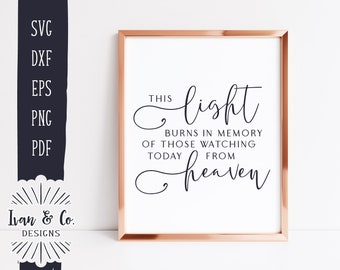 SVG
DXF
EPS
PNG
PDF
Ivan & Co.
DESIGNS
THIS light
BURNS IN MEMORY
OF THOSE WATCHING
TODAY FROM
heaven